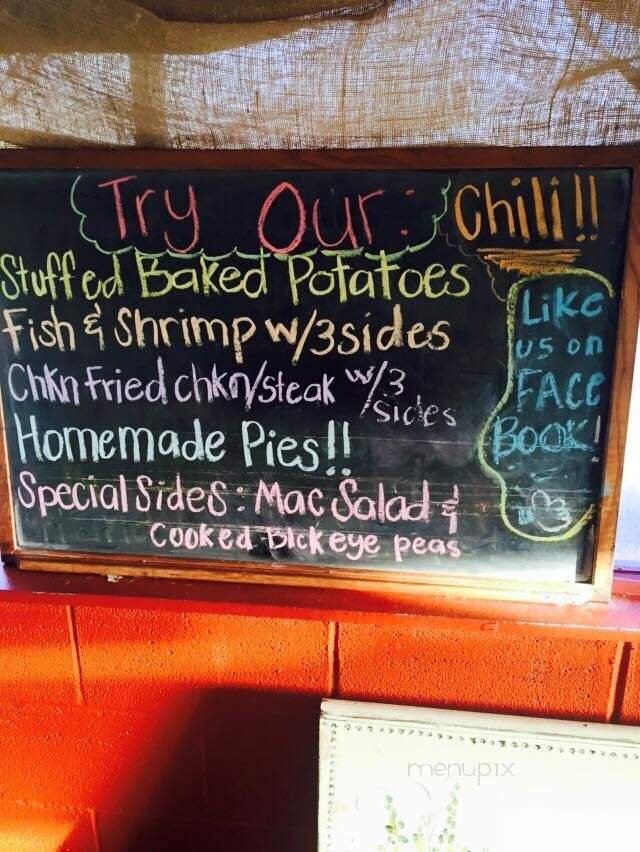 Try Our: Chili!!
Stuffed Baked Potatoes
Fish & Shrimp w/3sides
Chkn Fried chkn/steak w/3 sides
Homemade Pies!!
Special Sides: Mac Salad &
Cooked Blckeye peas
Like
us on
FACE
BOOK!
menupix